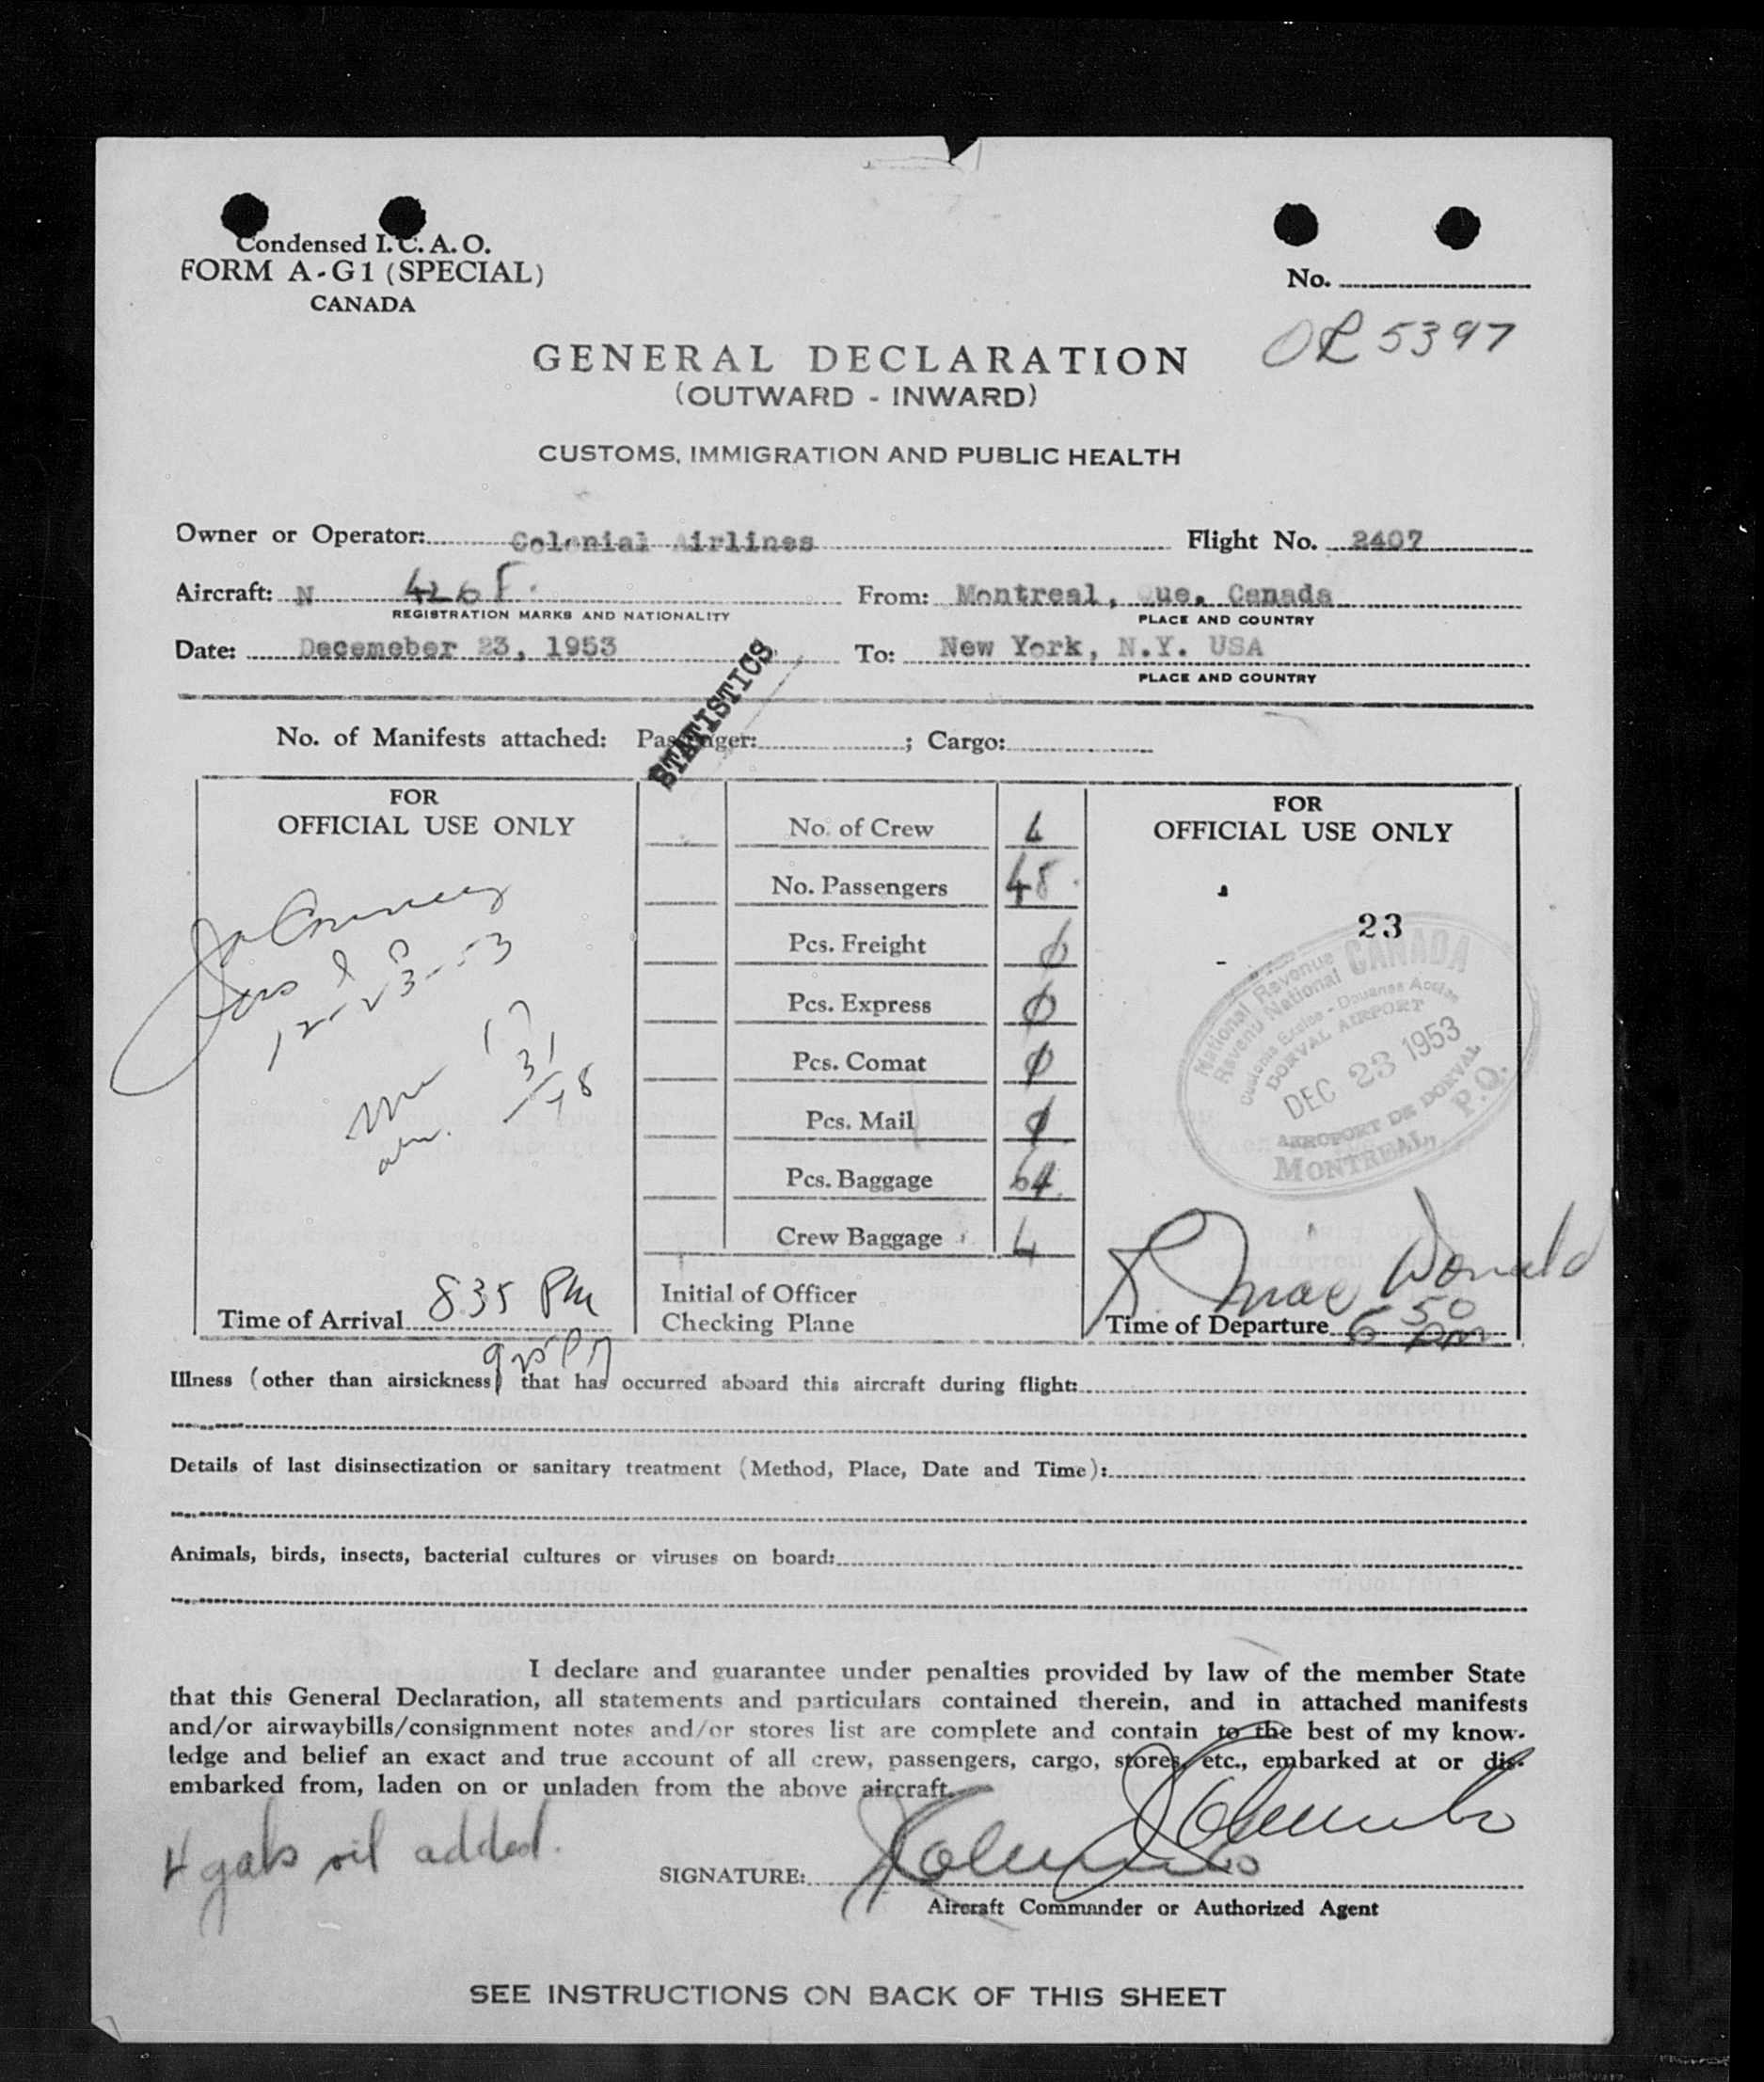 Condensed I.C.A.O.
FORM A-G1 (SPECIAL)
CANADA
No.
5397
GENERAL DECLARATION
(OUTWARD - INWARD)
CUSTOMS, IMMIGRATION AND PUBLIC HEALTH
Owner or Operator: Colonial Airlines Flight No. 2407
Aircraft: N From: Montreal, Que. Canada
REGISTRATION MARKS AND NATIONALITY PLACE AND COUNTRY
Date: Decemeber 23, 1953 To: New York, N.Y. USA
PLACE AND COUNTRY
STATISTICS
No. of Manifests attached: Passenger: ; Cargo:
FOR
OFFICIAL USE ONLY
12-23-53
17
31
48
Time of Arrival 835 PM
No. of Crew 4
No. Passengers 48
Pcs. Freight 0
Pcs. Express 0
Pcs. Comat 0
Pcs. Mail 0
Pcs. Baggage 64
Crew Baggage 4
Initial of Officer
Checking Plane
FOR
OFFICIAL USE ONLY
23
National Revenue CANADA
Revenu National
Customs Excise - Douanes Accise
DORVAL AIRPORT
DEC 23 1953
AEROPORT DE DORVAL
MONTREAL, P.Q.
R MacDonald
Time of Departure 6 50 pm
Illness (other than airsickness) that has occurred aboard this aircraft during flight:
Details of last disinsectization or sanitary treatment (Method, Place, Date and Time):
Animals, birds, insects, bacterial cultures or viruses on board:
I declare and guarantee under penalties provided by law of the member State
that this General Declaration, all statements and particulars contained therein, and in attached manifests
and/or airwaybills/consignment notes and/or stores list are complete and contain to the best of my know-
ledge and belief an exact and true account of all crew, passengers, cargo, stores, etc., embarked at or dis-
embarked from, laden on or unladen from the above aircraft.
4 gals oil added.
SIGNATURE:
Aircraft Commander or Authorized Agent
SEE INSTRUCTIONS ON BACK OF THIS SHEET